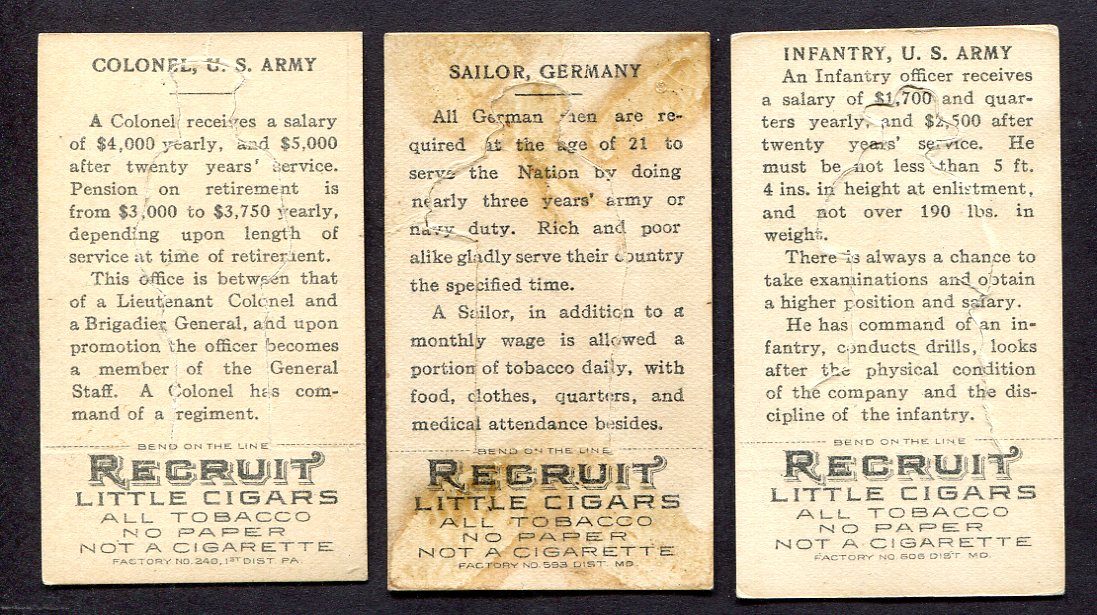 COLONEL, U. S. ARMY
A Colonel receives a salary
of $4,000 yearly, and $5,000
after twenty years' service.
Pension on retirement is
from $3,000 to $3,750 yearly,
depending upon length of
service at time of retirement.
This office is between that
of a Lieutenant Colonel and
a Brigadier General, and upon
promotion the officer becomes
a member of the General
Staff. A Colonel has com-
mand of a regiment.
BEND ON THE LINE
RECRUIT
LITTLE CIGARS
ALL TOBACCO
NO PAPER
NOT A CIGARETTE
FACTORY NO. 240, 1ST DIST. PA.
SAILOR, GERMANY
All German men are re-
quired at the age of 21 to
serve the Nation by doing
nearly three years' army or
navy duty. Rich and poor
alike gladly serve their country
the specified time.
A Sailor, in addition to a
monthly wage is allowed a
portion of tobacco daily, with
food, clothes, quarters, and
medical attendance besides.
BEND ON THE LINE
RECRUIT
LITTLE CIGARS
ALL TOBACCO
NO PAPER
NOT A CIGARETTE
FACTORY NO. 593 DIST. MD.
INFANTRY, U. S. ARMY
An Infantry officer receives
a salary of $1,700 and quar-
ters yearly, and $2,500 after
twenty years' service. He
must be not less than 5 ft.
4 ins. in height at enlistment,
and not over 190 lbs. in
weight.
There is always a chance to
take examinations and obtain
a higher position and salary.
He has command of an in-
fantry, conducts drills, looks
after the physical condition
of the company and the dis-
cipline of the infantry.
BEND ON THE LINE
RECRUIT
LITTLE CIGARS
ALL TOBACCO
NO PAPER
NOT A CIGARETTE
FACTORY NO. 606 DIST. MD.